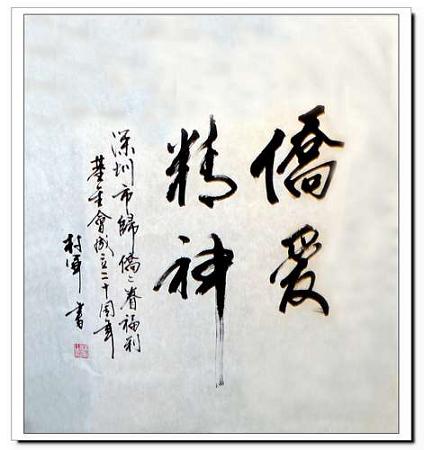 僑爱
精神
深圳市歸僑〻眷福利
基金會成立二十周年
書